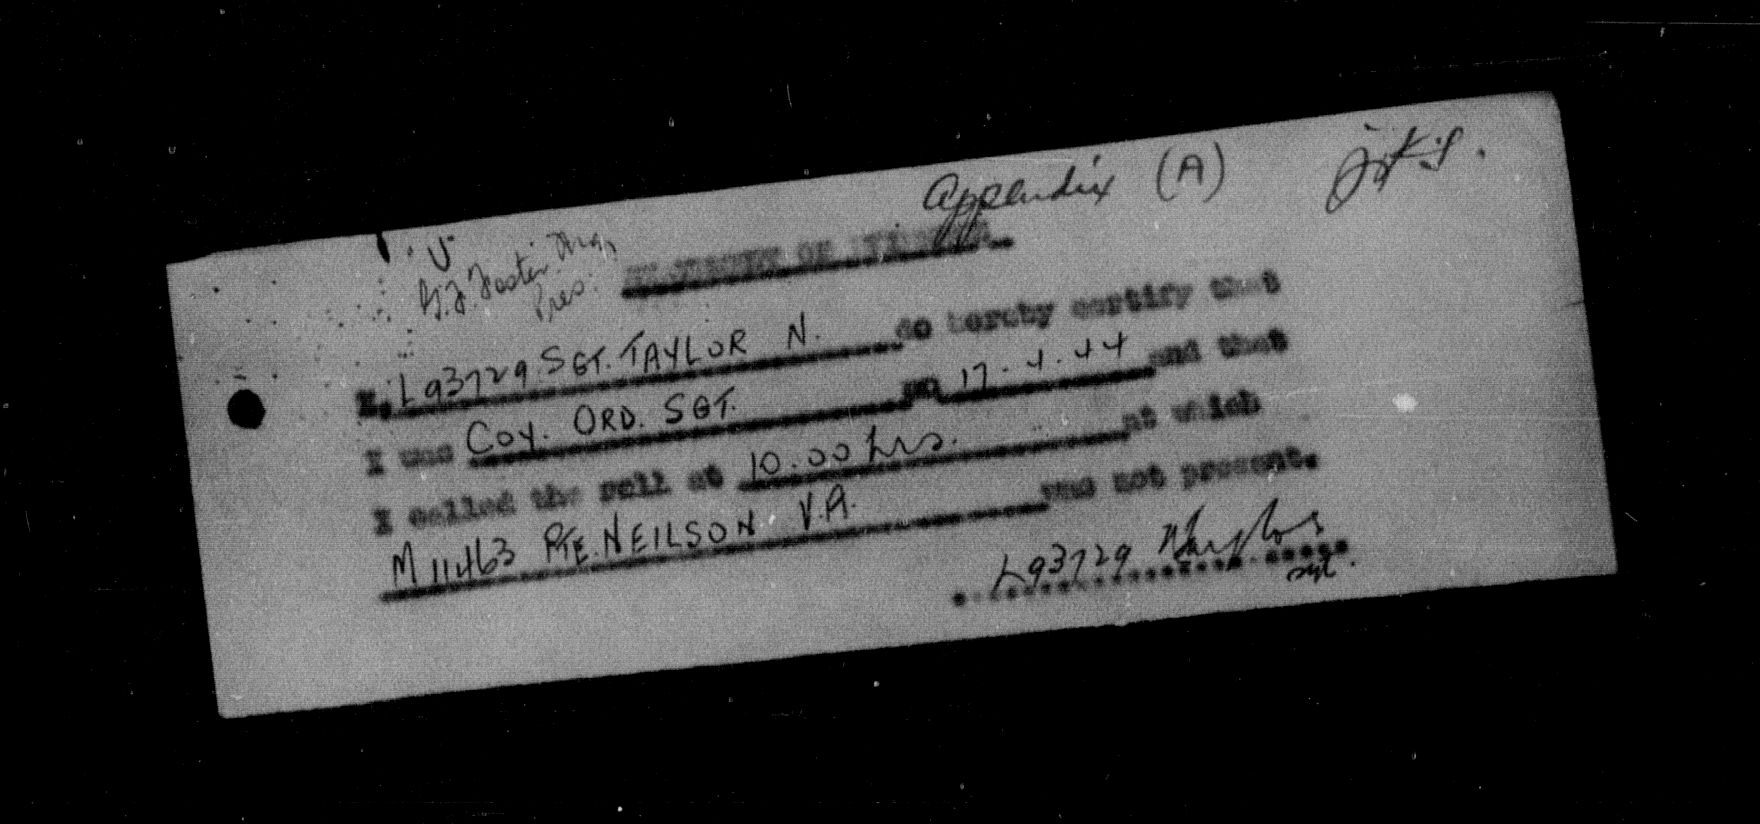 Appendix (A)
Pres.
I, L93729 SGT. TAYLOR N. do hereby certify that
I was COY. ORD. SGT. on 17.4.44 and that
I called the roll at 10.00 hrs. at which
M11463 PTE. NEILSON V.A. was not present.
L93729 NTaylor
Sgt.